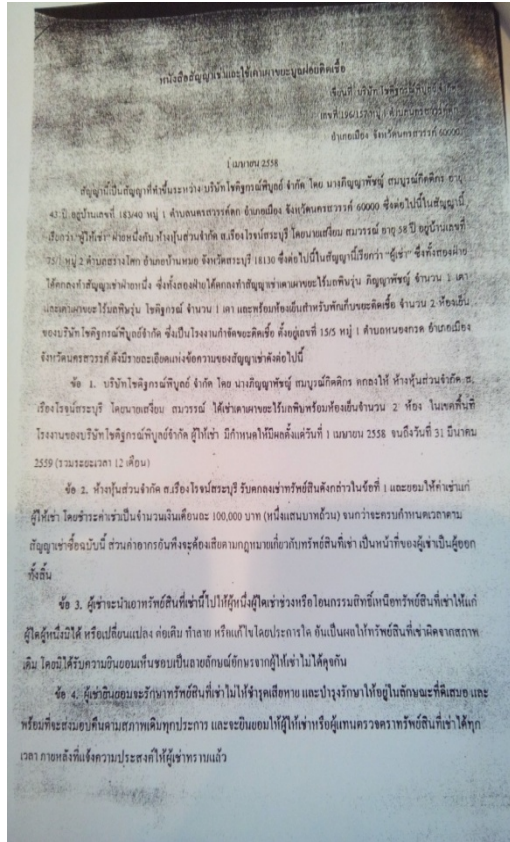 หนังสือสัญญาเช่าและใช้เตาเผาขยะมูลฝอยติดเชื้อ
เขียนที่ บริษัท โชติฐกรณ์พิบูลย์ จำกัด
เลขที่ 196/157 หมู่ 9 ตำบลนครสวรรค์ตก
อำเภอเมือง จังหวัดนครสวรรค์ 60000
1 เมษายน 2558
สัญญานี้เป็นสัญญาที่ทำขึ้นระหว่าง บริษัทโชติฐกรณ์พิบูลย์ จำกัด โดย นางภิญญาพัชญ์ สมบูรณ์กิตติกร อายุ
43 ปี อยู่บ้านเลขที่ 183/40 หมู่ 1 ตำบลนครสวรรค์ตก อำเภอเมือง จังหวัดนครสวรรค์ 60000 ซึ่งต่อไปนี้ในสัญญานี้
เรียกว่า "ผู้ให้เช่า" ฝ่ายหนึ่งกับ ห้างหุ้นส่วนจำกัด ส.เรืองโรจน์สระบุรี โดยนายเสงี่ยม สมวรรณ์ อายุ 58 ปี อยู่บ้านเลขที่
75/1 หมู่ 2 ตำบลสร่างโศก อำเภอบ้านหมอ จังหวัดสระบุรี 18130 ซึ่งต่อไปนี้ในสัญญานี้เรียกว่า "ผู้เช่า" ซึ่งทั้งสองฝ่าย
ได้ตกลงทำสัญญาเช่าฝ่ายหนึ่ง ซึ่งทั้งสองฝ่ายได้ตกลงทำสัญญาเช่าเตาเผาขยะไร้มลพิษรุ่น ภิญญาพัชญ์ จำนวน 1 เตา
และเตาเผาขยะไร้มลพิษรุ่น โชติฐกรณ์ จำนวน 1 เตา และพร้อมห้องเย็นสำหรับพักเก็บขยะติดเชื้อ จำนวน 2 ห้องเย็น
ของบริษัทโชติฐกรณ์พิบูลย์จำกัด ซึ่งเป็นโรงงานกำจัดขยะติดเชื้อ ตั้งอยู่เลขที่ 15/5 หมู่ 1 ตำบลหนองกรด อำเภอเมือง
จังหวัดนครสวรรค์ ดังมีรายละเอียดแห่งข้อความของสัญญาเช่าดังต่อไปนี้
ข้อ 1. บริษัทโชติฐกรณ์พิบูลย์ จำกัด โดย นางภิญญาพัชญ์ สมบูรณ์กิตติกร ตกลงให้ ห้างหุ้นส่วนจำกัด ส.
เรืองโรจน์สระบุรี โดยนายเสงี่ยม สมวรรณ์ ได้เช่าเตาเผาขยะไร้มลพิษพร้อมห้องเย็นจำนวน 2 ห้อง ในเขตพื้นที่
โรงงานของบริษัทโชติฐกรณ์พิบูลย์จำกัด ผู้ให้เช่า มีกำหนดให้มีผลตั้งแต่วันที่ 1 เมษายน 2558 จนถึงวันที่ 31 มีนาคม
2559 (รวมระยะเวลา 12 เดือน)
ข้อ 2. ห้างหุ้นส่วนจำกัด ส.เรืองโรจน์สระบุรี รับตกลงเช่าทรัพย์สินดังกล่าวในข้อที่ 1 และยอมให้ค่าเช่าแก่
ผู้ให้เช่า โดยชำระค่าเช่าเป็นจำนวนเงินเดือนละ 100,000 บาท (หนึ่งแสนบาทถ้วน) จนกว่าจะครบกำหนดเวลาตาม
สัญญาเช่าซื้อฉบับนี้ ส่วนค่าอากรอันพึงจะต้องเสียตามกฎหมายเกี่ยวกับทรัพย์สินที่เช่า เป็นหน้าที่ของผู้เช่าเป็นผู้ออก
ทั้งสิ้น
ข้อ 3. ผู้เช่าจะนำเอาทรัพย์สินที่เช่านี้ไปให้ผู้หนึ่งผู้ใดเช่าช่วงหรือโอนกรรมสิทธิ์เหนือทรัพย์สินที่เช่าให้แก่
ผู้ใดผู้หนึ่งมิได้ หรือเปลี่ยนแปลง ต่อเติม ทำลาย หรือแก้ไขโดยประการใด อันเป็นผลให้ทรัพย์สินที่เช่าผิดจากสภาพ
เดิม โดยมิได้รับความยินยอมเห็นชอบเป็นลายลักษณ์อักษรจากผู้ให้เช่าไม่ได้ดุจกัน
ข้อ 4. ผู้เช่ายินยอมจะรักษาทรัพย์สินที่เช่าไม่ให้ชำรุดเสียหาย และบำรุงรักษาให้อยู่ในลักษณะที่ดีเสมอ และ
พร้อมที่จะส่งมอบคืนตามสภาพเดิมทุกประการ และจะยินยอมให้ผู้ให้เช่าหรือผู้แทนตรวจตราทรัพย์สินที่เช่าได้ทุก
เวลา ภายหลังที่แจ้งความประสงค์ให้ผู้เช่าทราบแล้ว